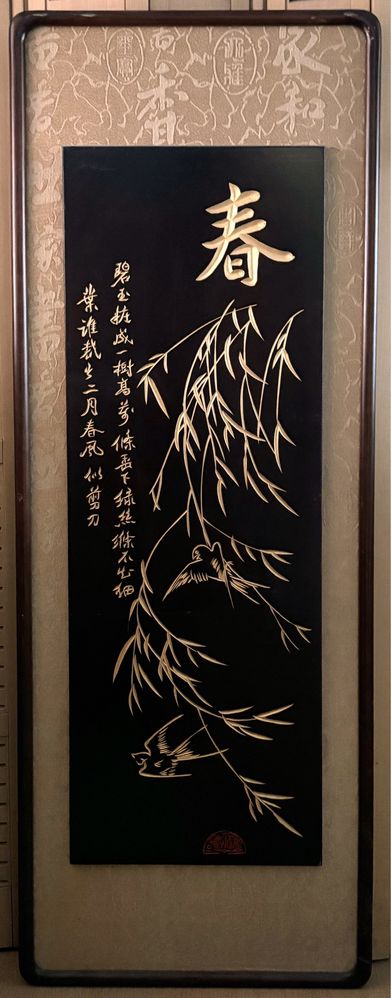 春
碧玉妝成一樹高萬條垂下綠絲縧不知細
葉誰裁出二月春風似剪刀
家和
香